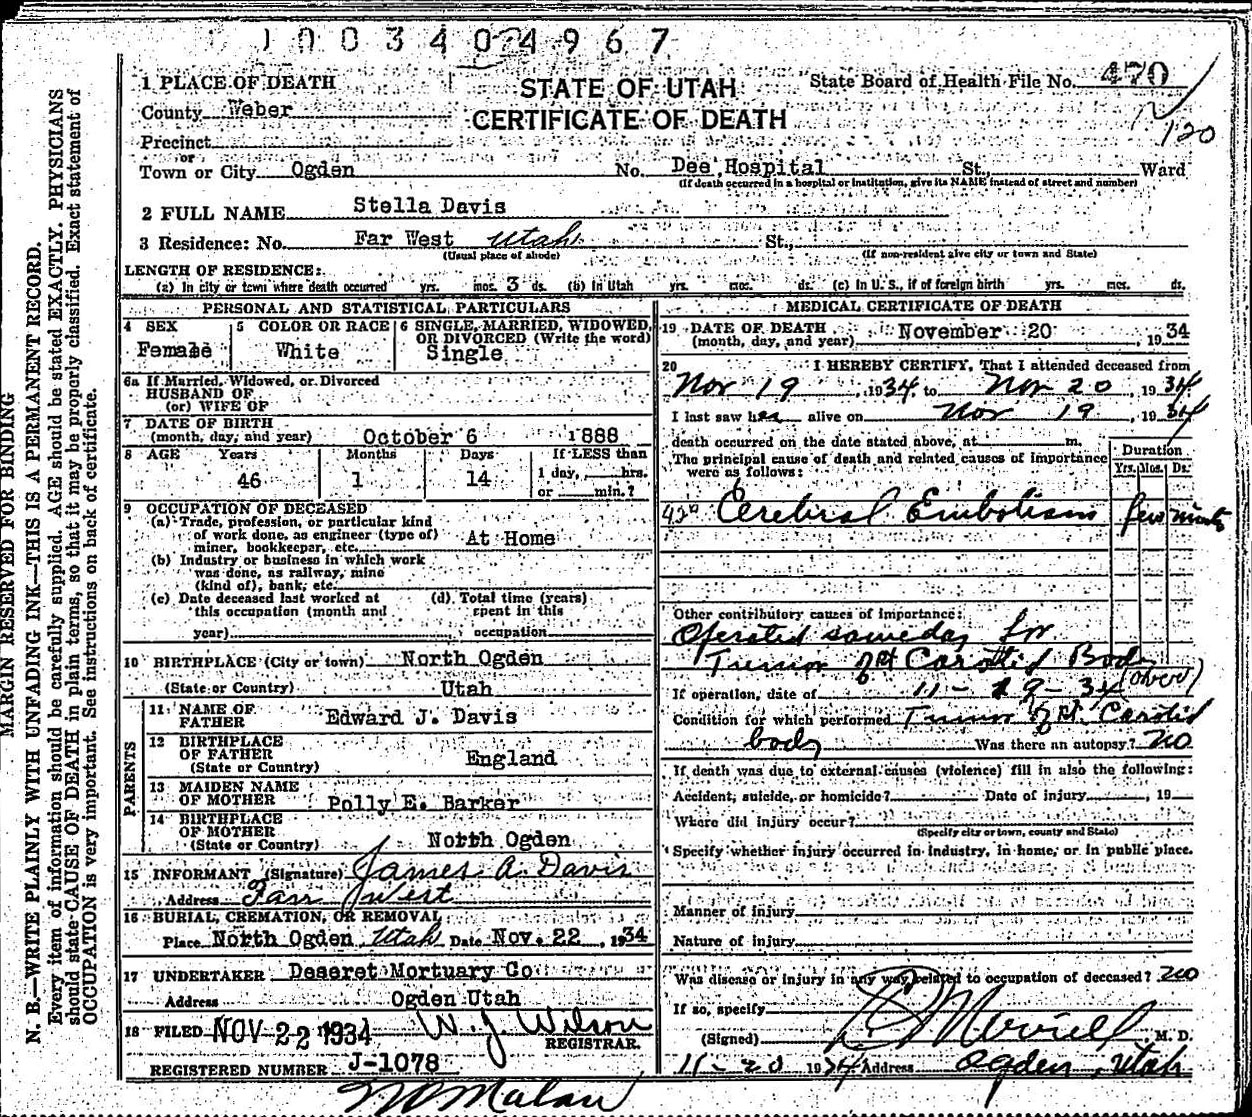 1003404967
1 PLACE OF DEATH
County Weber
Precinct
or
Town or City Ogden No. Dee Hospital St., Ward
(If death occurred in a hospital or institution, give its NAME instead of street and number)
STATE OF UTAH
CERTIFICATE OF DEATH
State Board of Health File No. 470
120
2 FULL NAME Stella Davis
3 Residence: No. Far West Utah St.,
(Usual place of abode) (If non-resident give city or town and State)
LENGTH OF RESIDENCE:
(a) In city or town where death occurred yrs. mos. 3 ds. (b) In Utah yrs. mos. ds. (c) In U. S., if of foreign birth yrs. mos. ds.
PERSONAL AND STATISTICAL PARTICULARS
4 SEX
Female
5 COLOR OR RACE
White
6 SINGLE, MARRIED, WIDOWED,
OR DIVORCED (Write the word)
Single
6a If Married, Widowed, or Divorced
HUSBAND OF
(or) WIFE OF
7 DATE OF BIRTH
(month, day, and year) October 6 1888
8 AGE Years Months Days If LESS than
46 1 14 1 day, hrs.
or min.?
9 OCCUPATION OF DECEASED
(a) Trade, profession, or particular kind
of work done, as engineer (type of)
miner, bookkeeper, etc. At Home
(b) Industry or business in which work
was done, as railway, mine
(kind of), bank, etc.
(c) Date deceased last worked at
this occupation (month and
year)
(d) Total time (years)
spent in this
occupation
10 BIRTHPLACE (City or town) North Ogden
(State or Country) Utah
PARENTS
11 NAME OF
FATHER Edward J. Davis
12 BIRTHPLACE
OF FATHER
(State or Country) England
13 MAIDEN NAME
OF MOTHER Polly E. Barker
14 BIRTHPLACE
OF MOTHER
(State or Country) North Ogden
15 INFORMANT (Signature) James A. Davis
Address Farr West
16 BURIAL, CREMATION, OR REMOVAL
Place North Ogden Utah Date Nov. 22, 1934
17 UNDERTAKER Deseret Mortuary Co
Address Ogden Utah
18 FILED NOV 22 1934 W. J. Wilson
REGISTRAR.
REGISTERED NUMBER J-1078
Malan
MEDICAL CERTIFICATE OF DEATH
19 DATE OF DEATH
(month, day, and year) November 20, 1934
20 I HEREBY CERTIFY, That I attended deceased from
Nov 19, 1934 to Nov 20, 1934
I last saw her alive on Nov 19, 1934
death occurred on the date stated above, at m.
The principal cause of death and related causes of importance
were as follows:
Duration
Yrs. Mos. Ds.
Cerebral Embolism few
Other contributory causes of importance:
Operated same day for
Tumor of rt Carotid Body
(over)
If operation, date of 11-19-34
Condition for which performed Tumor of rt. Carotid
body Was there an autopsy? no
If death was due to external causes (violence) fill in also the following:
Accident, suicide, or homicide? Date of injury, 19
Where did injury occur?
(Specify city or town, county and State)
Specify whether injury occurred in industry, in home, or in public place.
Manner of injury
Nature of injury
Was disease or injury in any way related to occupation of deceased? no
If so, specify
(Signed) Merrill M. D.
11-20 1934 Address Ogden, Utah
MARGIN RESERVED FOR BINDING
N. B.—WRITE PLAINLY WITH UNFADING INK—THIS IS A PERMANENT RECORD.
Every item of information should be carefully supplied. AGE should be stated EXACTLY. PHYSICIANS
should state CAUSE OF DEATH in plain terms, so that it may be properly classified. Exact statement of
OCCUPATION is very important. See instructions on back of certificate.